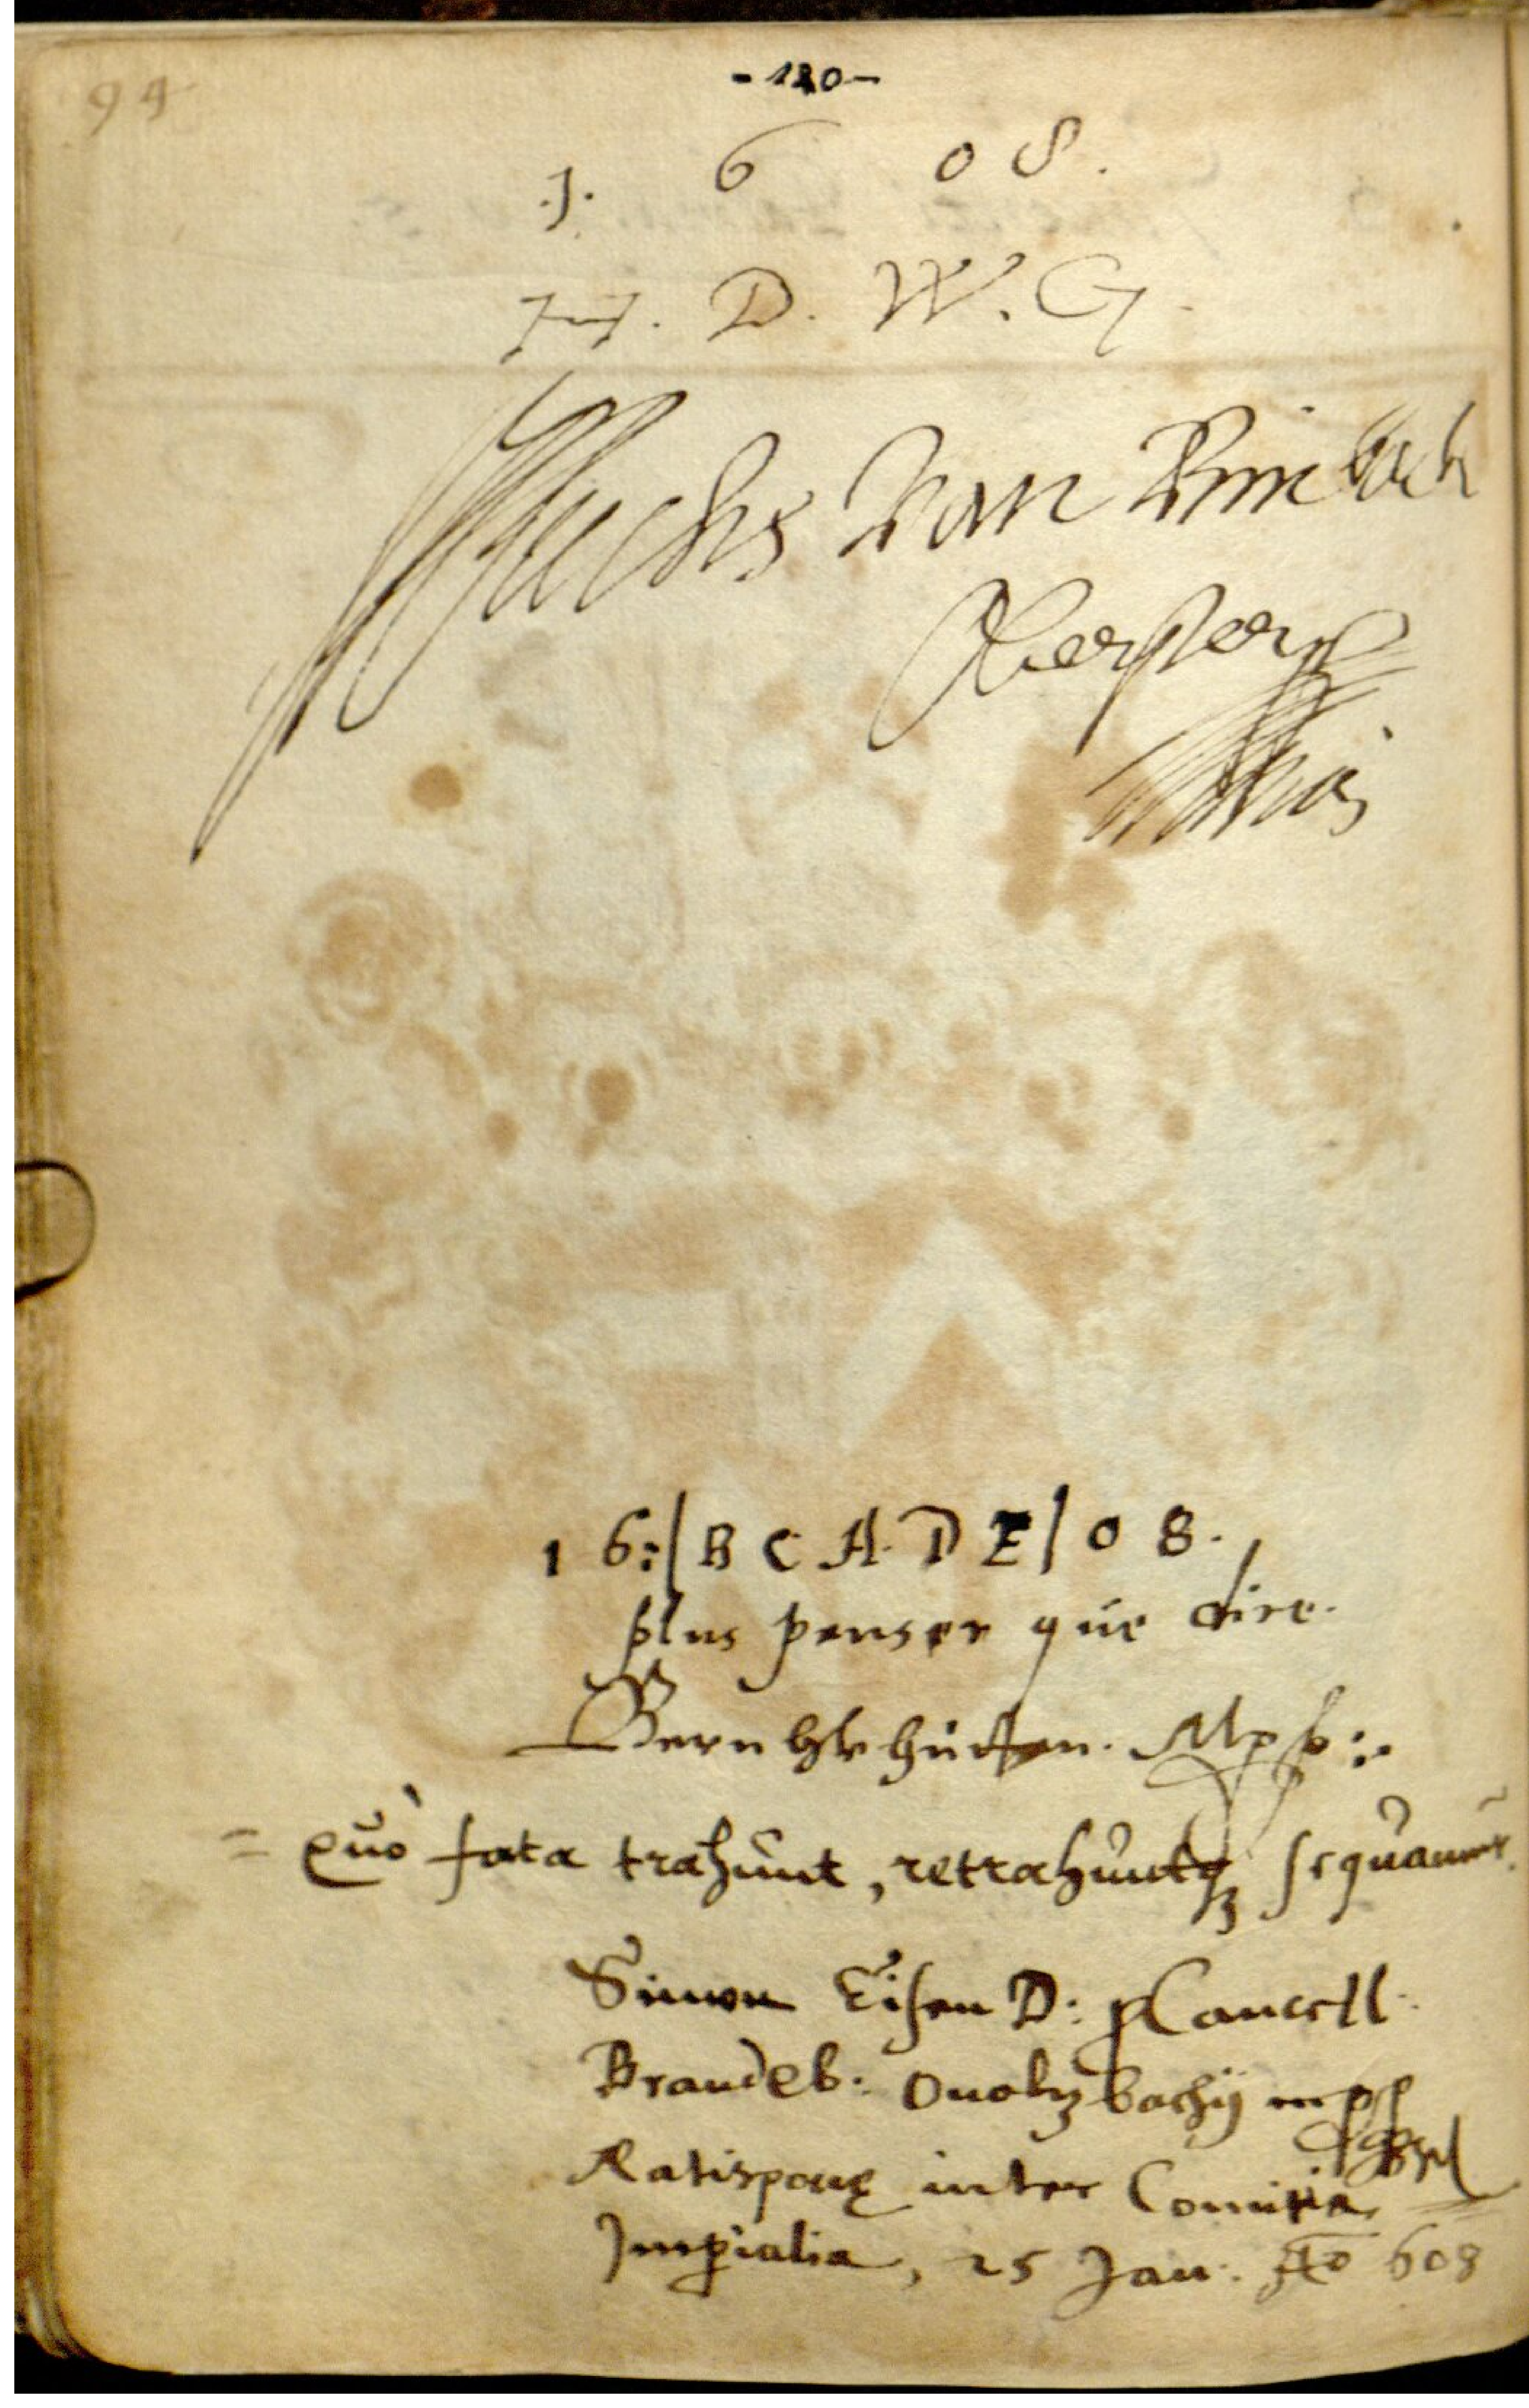 94
- 120 -
.J. 6 0 8.
H. D. W. G.
Fuchs von Bimbach
Oberster
16:|B C A. D E| 0 8.
plus penser que dire.
Bern von hütten. Mpp:.
= quò fata trahunt, retrahuntq; sequamur.
Simon Eisen D: pCancell.
Brandeb: Onoltzbachij mpp
Ratisponę inter Comitia
Imperialia, 25 Jan. Ao 608